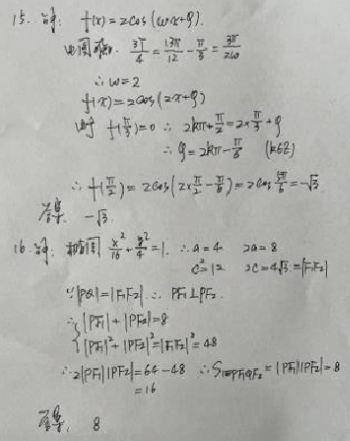 15. 解: f(x)=2cos(ωx+φ).
由图知. 3T/4 = 13π/12 - π/3 = 3π/2ω
∴ ω=2
f(x)=2cos(2x+φ)
由于 f(π/3)=0 ∴ 2kπ+π/2=2×π/3+φ
∴ φ=2kπ-π/6 (k∈Z)
∴ f(π/2)=2cos(2×π/2-π/6)=2cos 5π/6=-√3
答案. -√3.
16. 解: 椭圆 x²/16+y²/4=1. ∴ a=4 2a=8
c²=12 2c=4√3=|F₁F₂|
∵|PQ|=|F₁F₂| ∴ PF₁⊥PF₂
∴ {|PF₁|+|PF₂|=8
|PF₁|²+|PF₂|²=|F₁F₂|²=48
∴ 2|PF₁||PF₂|=64-48 ∴ S四PF₁QF₂=|PF₁||PF₂|=8
=16
答案. 8